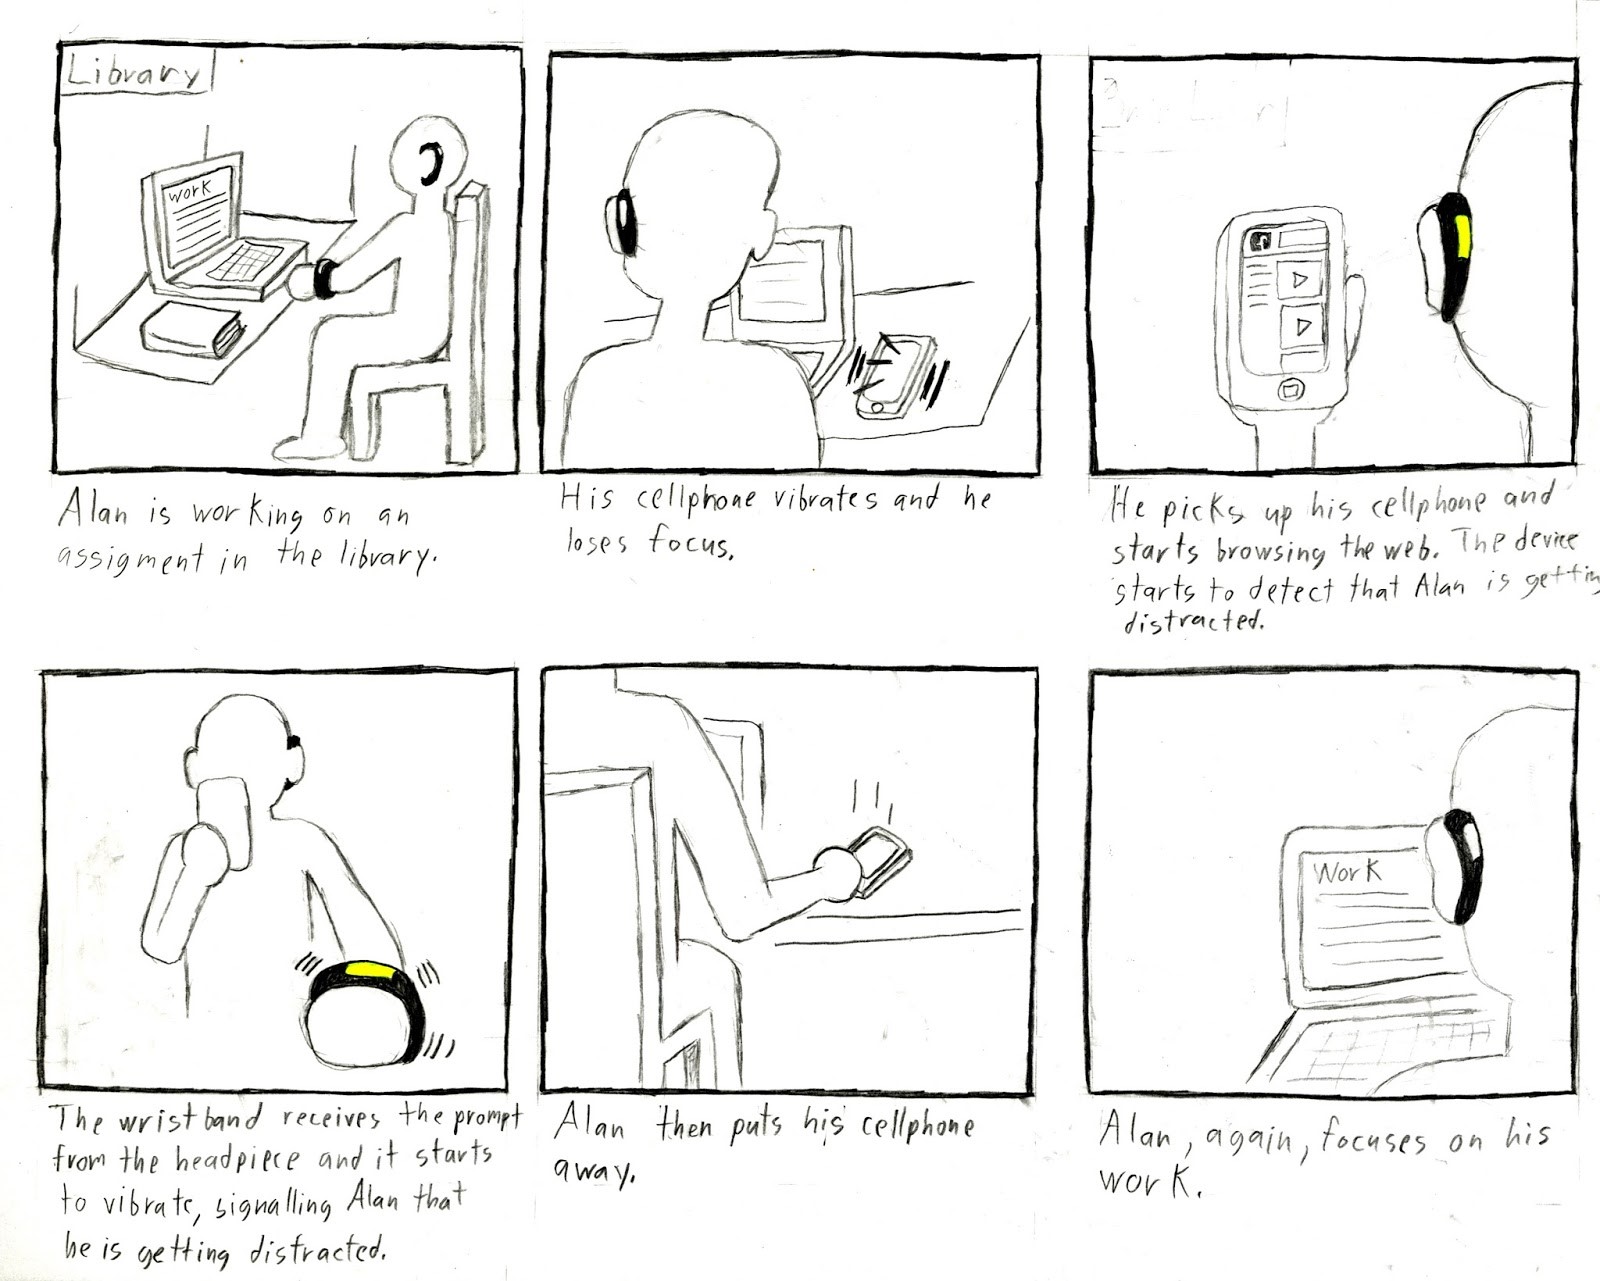 Library
work
Alan is working on an
assigment in the library.
His cellphone vibrates and he
loses focus.
He picks up his cellphone and
starts browsing the web. The device
starts to detect that Alan is gettin
distracted.
The wristband receives the prompt
from the headpiece and it starts
to vibrate, signalling Alan that
he is getting distracted.
Alan then puts his cellphone
away.
Work
Alan, again, focuses on his
work.